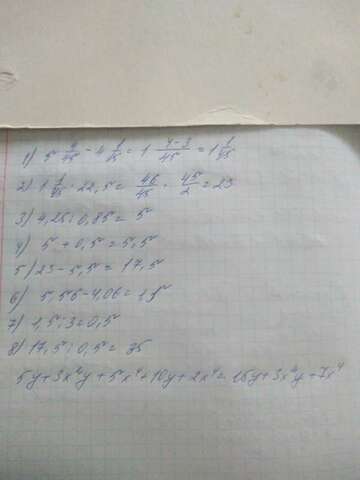 1) 5 4/45 - 4 1/15 = 1 4-3/45 = 1 1/45
2) 1 1/45 · 22,5 = 46/45 · 45/2 = 23
3) 4,25 : 0,85 = 5
4) 5 + 0,5 = 5,5
5) 23 - 5,5 = 17,5
6) 5,56 - 4,06 = 1,5
7) 1,5 : 3 = 0,5
8) 17,5 : 0,5 = 35
5y + 3x⁴y + 5x⁴ + 10y + 2x⁴ = 15y + 3x⁴y + 7x⁴